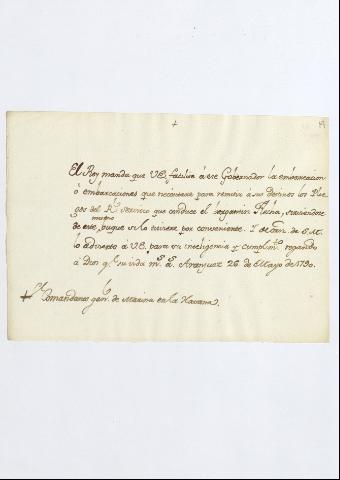 +
El Rey manda que V.E. facilite á ese Gobernador la embarcacion
ó embarcaciones que necesitare para remitir á sus destinos los Plie-
gos del Rl. servicio que conduce el bergantin sirviendose
mismo
de este buque si lo tuviere por conveniente. Y de orn. de S.M.
lo advierto á V.E. para su inteligencia y cumplimto. rogando
á Dios ge. su vida ms. as. Aranjuez 26 de Mayo de 1790.
+ Sr. Comandante genl. de Marina en la Havana.